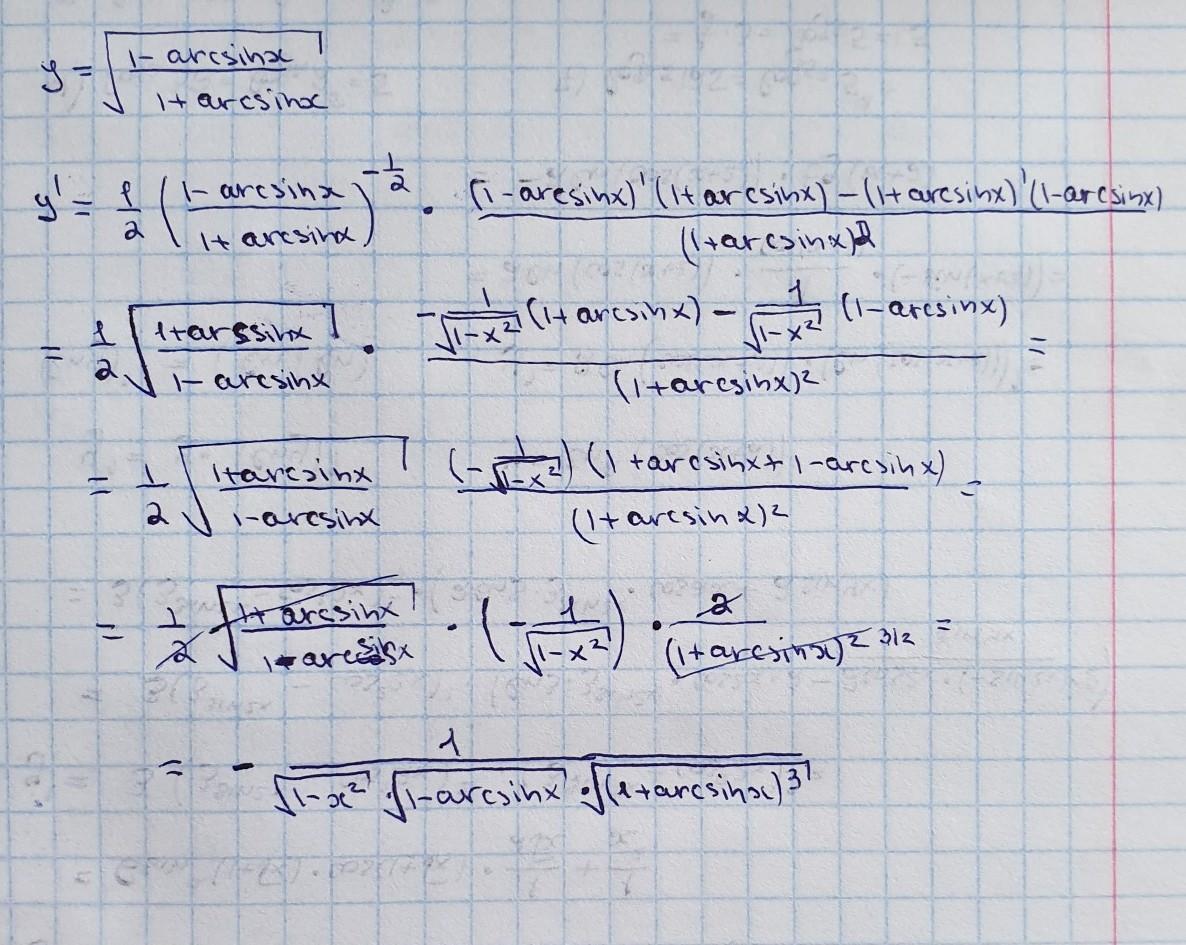 y = √((1 - arcsinx)/(1 + arcsinx))
y' = 1/2 ((1 - arcsinx)/(1 + arcsinx))^(-1/2) · ((1 - arcsinx)'(1 + arcsinx) - (1 + arcsinx)'(1 - arcsinx))/(1 + arcsinx)²
= 1/2 √((1 + arcsinx)/(1 - arcsinx)) · (-1/√(1-x²) (1 + arcsinx) - 1/√(1-x²) (1 - arcsinx))/(1 + arcsinx)² =
= 1/2 √((1 + arcsinx)/(1 - arcsinx)) ((-1/√(1-x²)) (1 + arcsinx + 1 - arcsinx))/(1 + arcsinx)² =
= 1/2 √((1 + arcsinx)/(1 - arcsinx)) · (-1/√(1-x²)) · 2/(1 + arcsinx)² 3/2 =
= - 1/(√(1-x²) · √(1 - arcsinx) · √((1 + arcsinx)³))